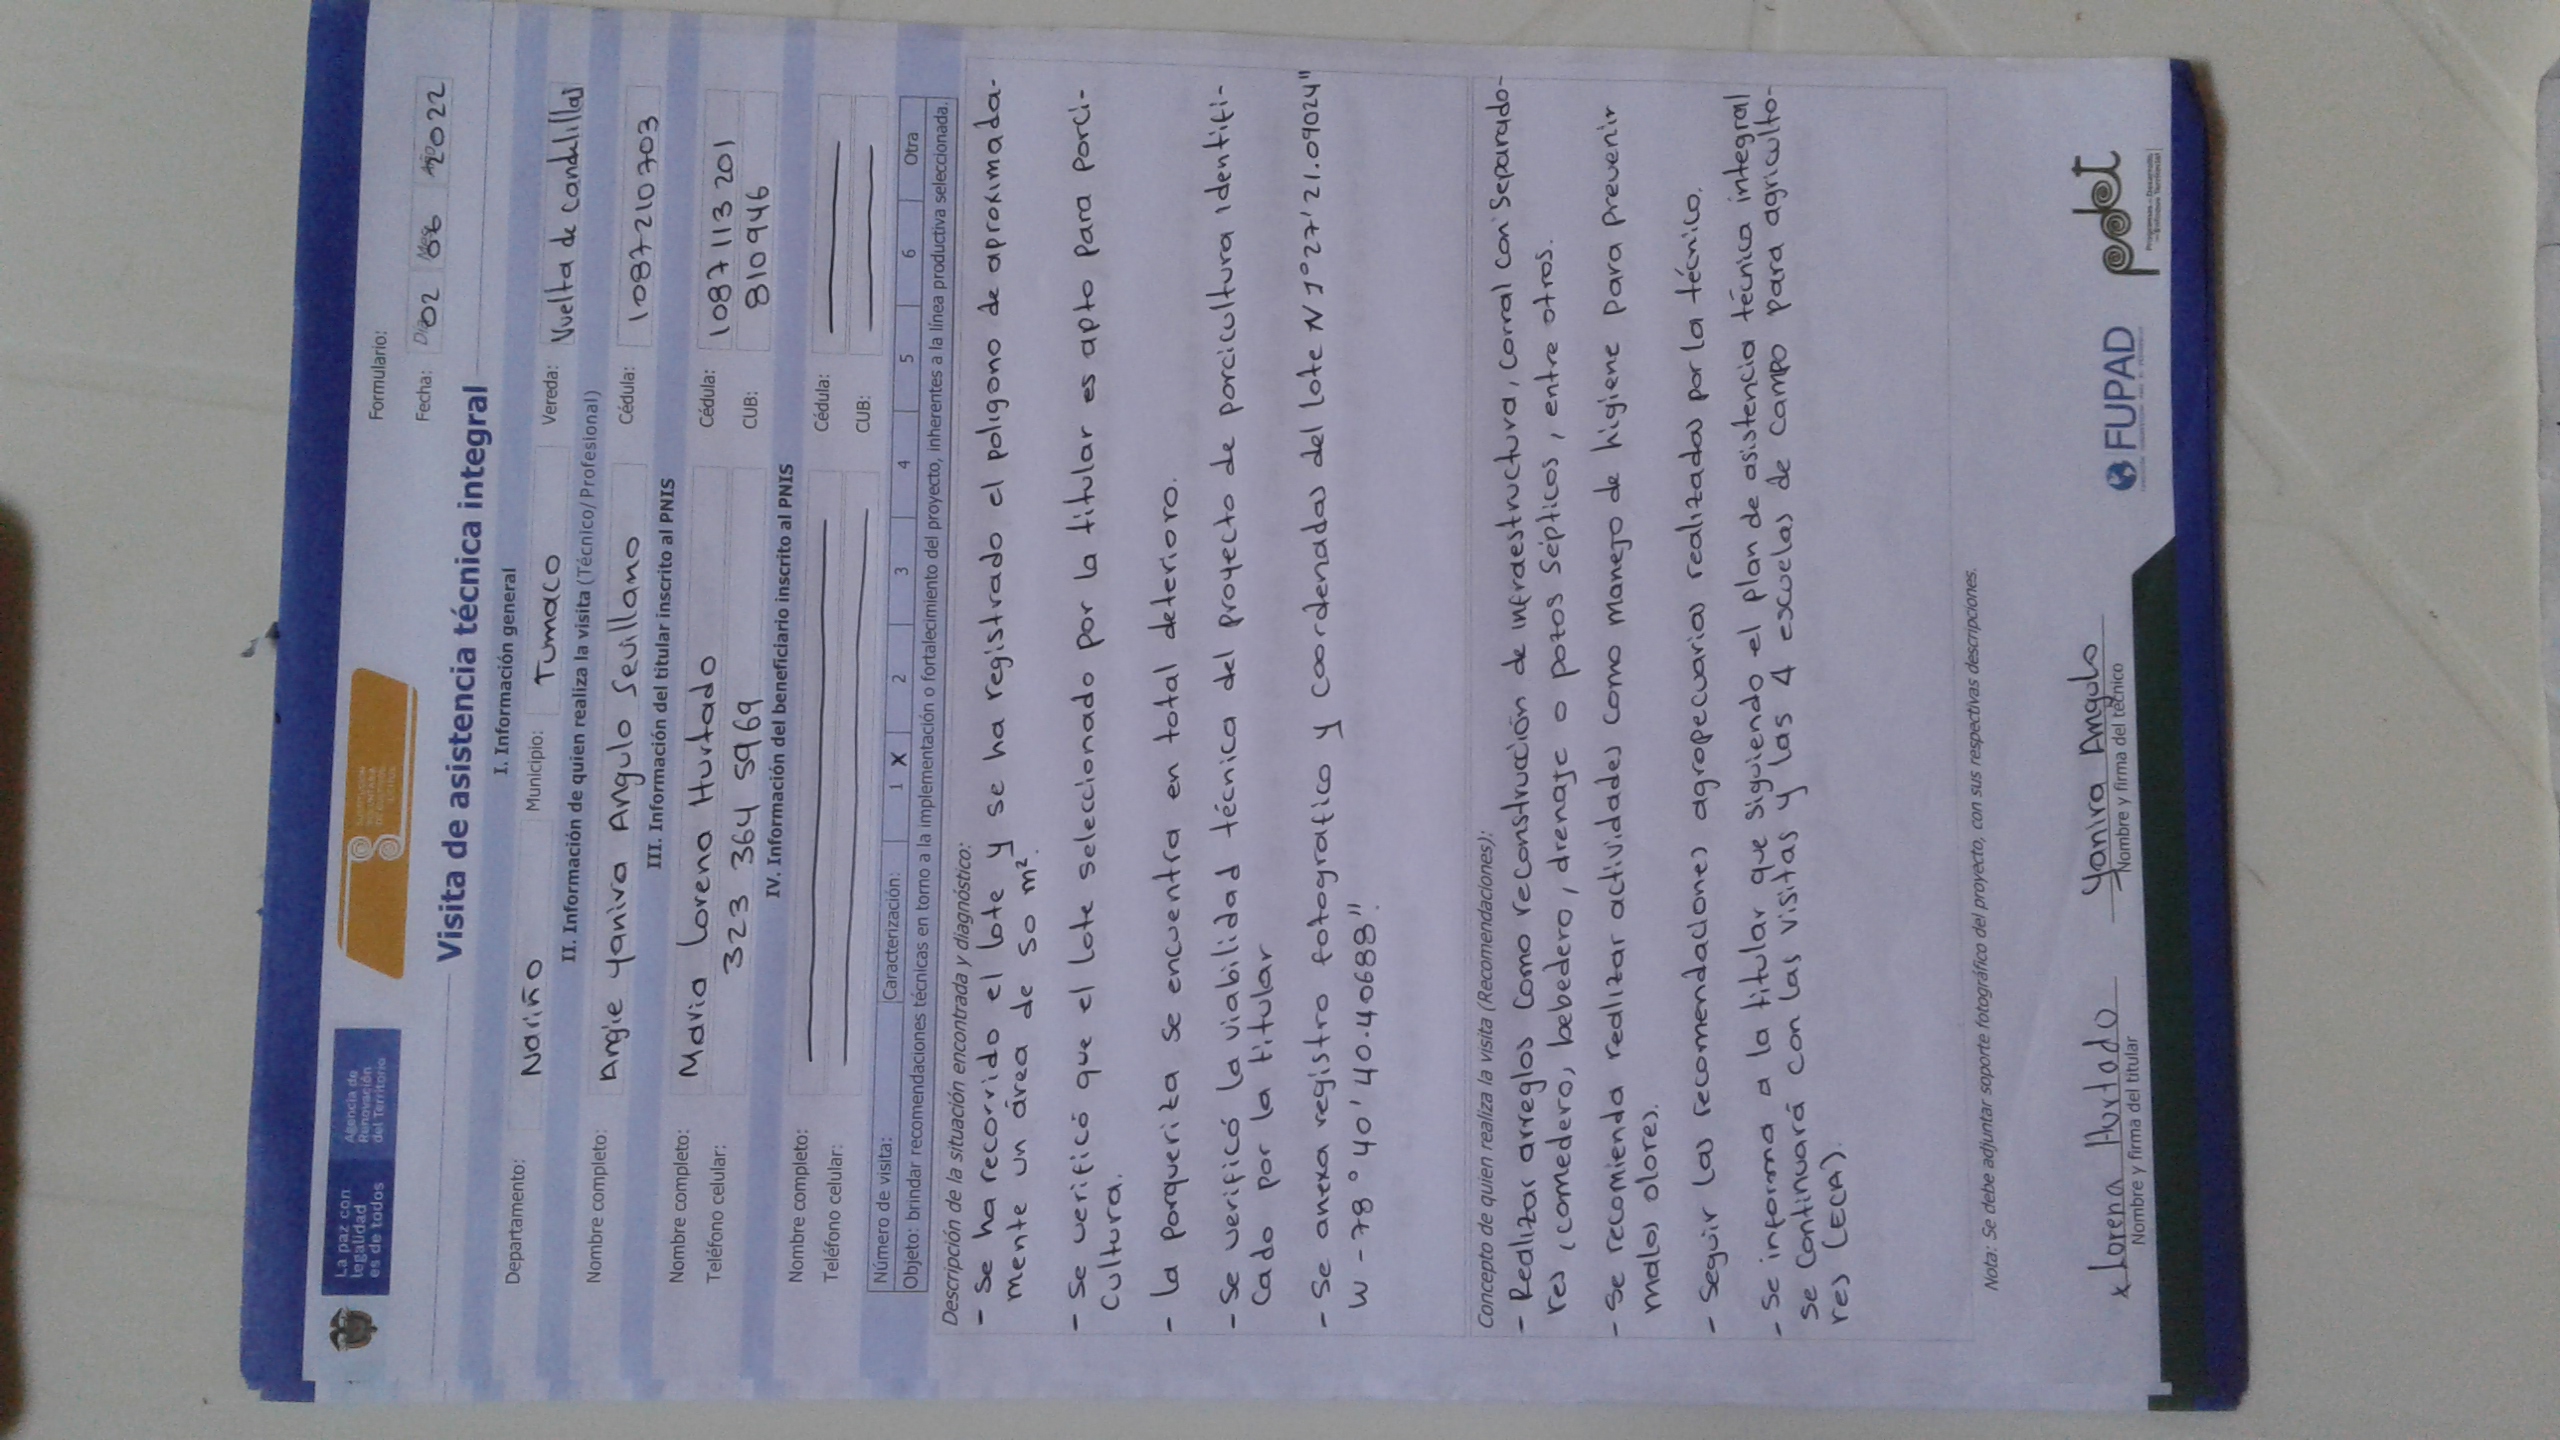 La paz con
legalidad
es de todos
Agencia de
Renovación
del Territorio
SUSTITUCIÓN
VOLUNTARIA
DE CULTIVOS
ILÍCITOS
Formulario:
Fecha: Día 02 Mes 06 Año 2022
Visita de asistencia técnica integral
I. Información general
Departamento: Nariño Municipio: Tumaco Vereda: Vuelta de candelillas
II. Información de quien realiza la visita (Técnico/Profesional)
Nombre completo: Angie Yanira Angulo Sevillano Cédula: 1087210703
III. Información del titular inscrito al PNIS
Nombre completo: Maria Lorena Hurtado Cédula: 1087113201
Teléfono celular: 323 364 5969 CUB: 810946
IV. Información del beneficiario inscrito al PNIS
Nombre completo: Cédula:
Teléfono celular: CUB:
Número de visita: Caracterización: 1 X 2 3 4 5 6 Otra
Objeto: brindar recomendaciones técnicas en torno a la implementación o fortalecimiento del proyecto, inherentes a la línea productiva seleccionada.
Descripción de la situación encontrada y diagnóstico:
- Se ha recorrido el lote y se ha registrado el poligono de aproximada-
mente un área de 50 m².
- Se verificó que el lote seleccionado por la titular es apto para porci-
cultura.
- La porqueriza se encuentra en total deterioro.
- Se verificó la viabilidad técnica del proyecto de porcicultura identifi-
cado por la titular
- Se anexa registro fotografico y coordenadas del lote N 1°27'21.09024"
W -78°40'40.40688".
Concepto de quien realiza la visita (Recomendaciones):
- Realizar arreglos como reconstrucción de infraestructura, corral con separado-
res, comedero, bebedero, drenaje o pozos sépticos, entre otros.
- Se recomienda realizar actividades como manejo de higiene para prevenir
malos olores.
- Seguir las recomendaciones agropecuarias realizadas por la técnico.
- Se informa a la titular que siguiendo el plan de asistencia técnica integral
se continuará con las visitas y las 4 escuelas de campo para agriculto-
res (ECA).
Nota: Se debe adjuntar soporte fotográfico del proyecto, con sus respectivas descripciones.
x Lorena Hurtado
Nombre y firma del titular
Yanira Angulo
Nombre y firma del técnico
FUPAD
pdet
Programas de Desarrollo
con Enfoque Territorial